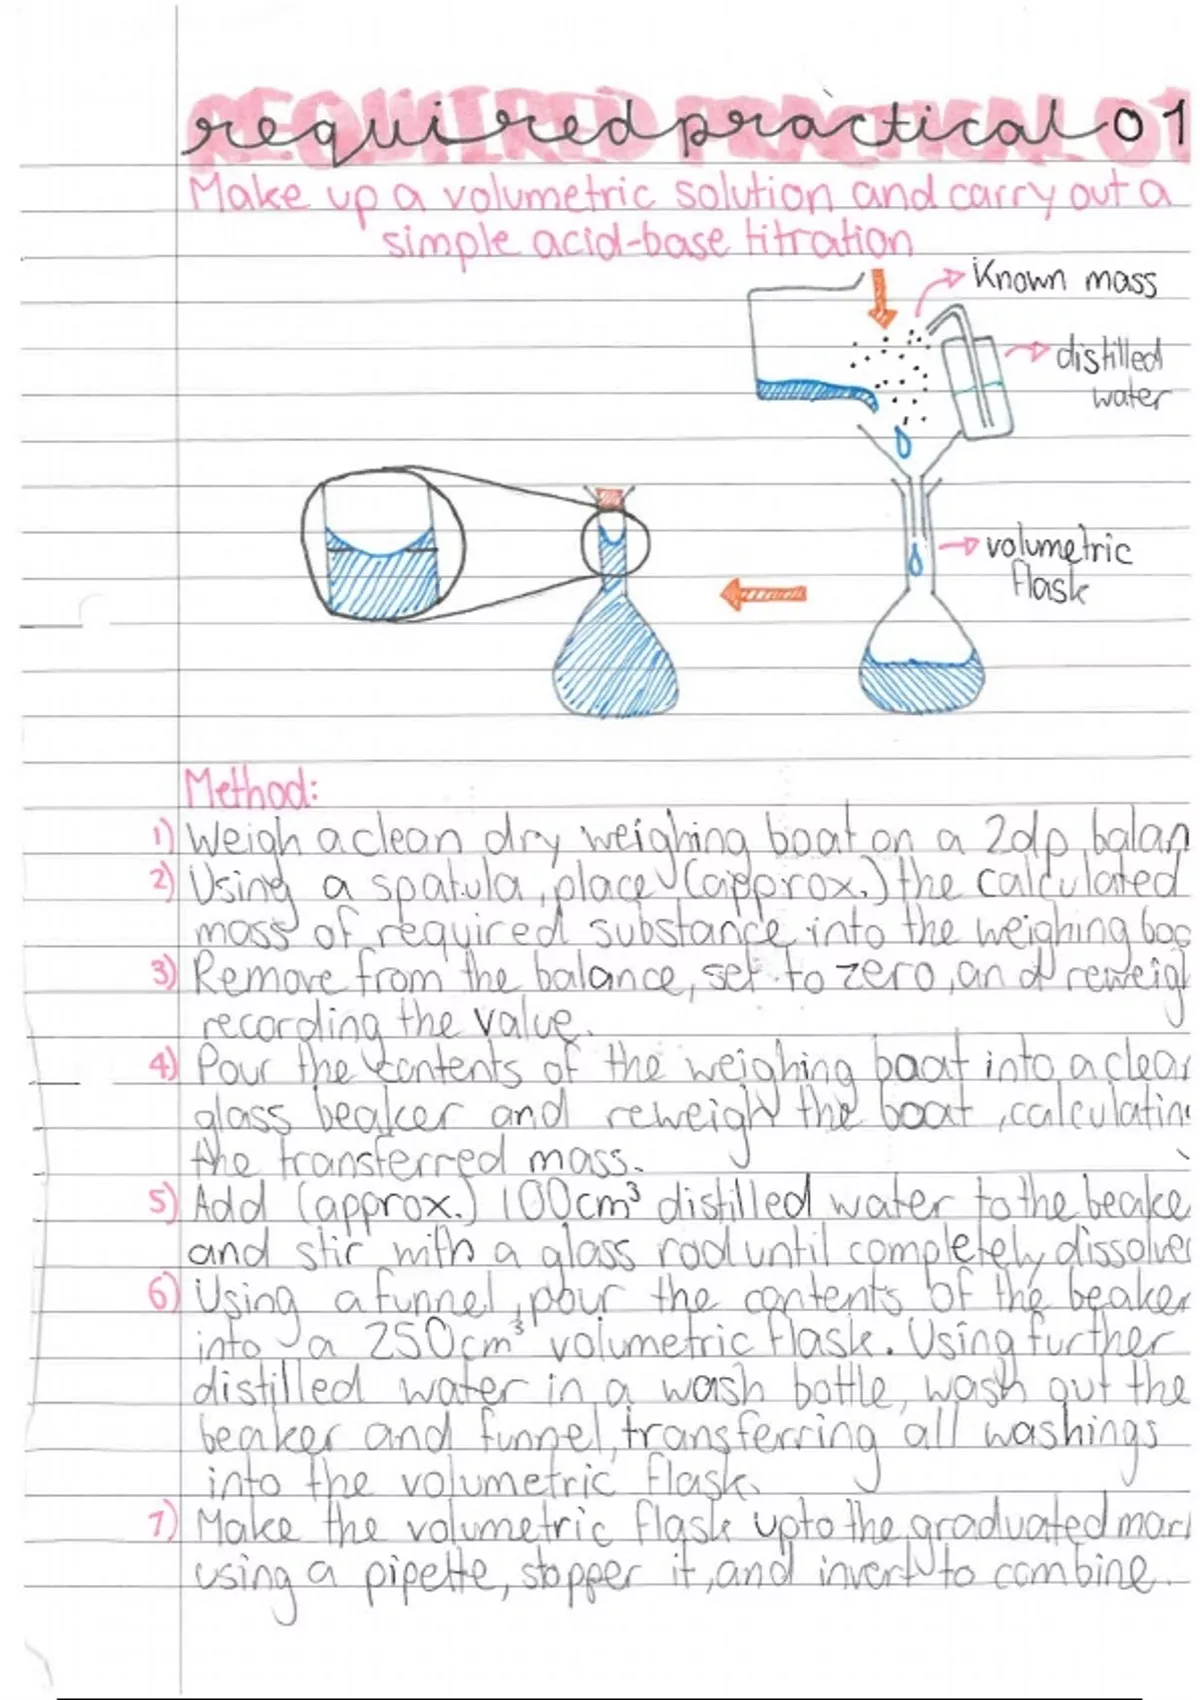 required practical 01
Make up a volumetric solution and carry out a
simple acid-base titration
Known mass
distilled
water
volumetric
flask
Method:
1) Weigh a clean dry weighing boat on a 2dp balan
2) Using a spatula, place (approx.) the calculated
mass of required substance into the weighing boa
3) Remove from the balance, set to zero, and reweigh
recording the value.
4) Pour the contents of the weighing boat into a clean
glass beaker and reweigh the boat, calculating
the transferred mass.
5) Add (approx.) 100cm³ distilled water to the beake
and stir with a glass rod until completely dissolved
6) Using a funnel, pour the contents of the beaker
into a 250cm³ volumetric flask. Using further
distilled water in a wash bottle, wash out the
beaker and funnel, transferring all washings
into the volumetric flask.
7) Make the volumetric flask upto the graduated mark
using a pipette, stopper it, and invert to combine.